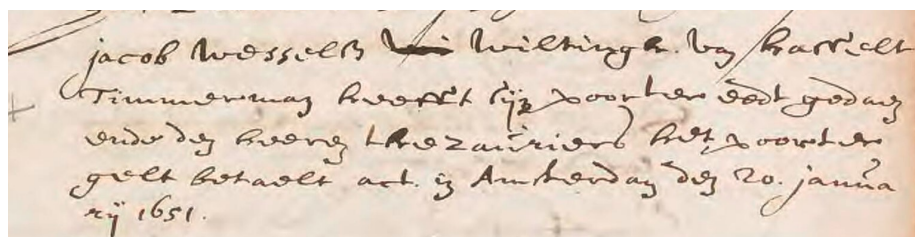 jacob wesselß wiltingh. van hasselt
Timmerman heefft sijn poorter eedt gedaen
ende den heeren thezauriers het poorter
gelt betaelt act. in Amsterdam den 20. janua
rij 1651.